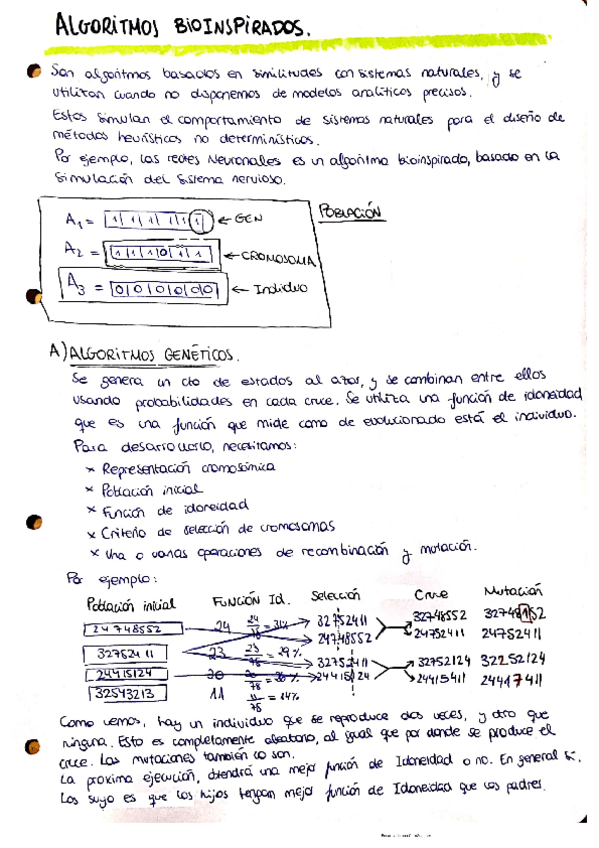 ALGORITMOS BIOINSPIRADOS.
Son algoritmos basados en similitudes con sistemas naturales, y se
utilizan cuando no disponemos de modelos analíticos precisos.
Estos simulan el comportamiento de sistemas naturales para el diseño de
métodos heurísticos no determinísticos.
Por ejemplo, las redes Neuronales es un algoritmo bioinspirado, basado en la
simulación del sistema nervioso.
POBLACIÓN
A1 = |1|1|1|1|1|1| ← GEN
A2 = |1|1|1|0|1|1| ← CROMOSOMA
A3 = |0|0|0|0|0|0| ← Individuo
A) ALGORITMOS GENÉTICOS.
Se genera un cto de estados al azar, y se combinan entre ellos
usando probabilidades en cada cruce. Se utiliza una función de idoneidad
que es una función que mide como de evolucionado está el individuo.
Para desarrollarlo, necesitamos:
× Representación cromosómica
× Población inicial
× Función de idoneidad
× Criterio de selección de cromosomas
× Una o varias operaciones de recombinación y mutación.
Por ejemplo:
Población inicial FUNCIÓN Id. Selección Cruce Mutación
24748552 24 24/78 = 31% 32752411 32748552 32748152
32752411 23 23/78 = 29% 24748552 24752411 24752411
24415124 20 20/78 = 26% 32752411 32752124 32252124
32543213 11 11/78 = 14% 24415124 24415411 24417411
Como vemos, hay un individuo que se reproduce dos veces, y otro que
ninguna. Esto es completamente aleatorio, al igual que por donde se produce el
cruce. Las mutaciones también lo son.
La proxima ejecución, obtendrá una mejor función de Idoneidad o no. En general sí.
Los suyo es que los hijos tengan mejor función de Idoneidad que los padres.